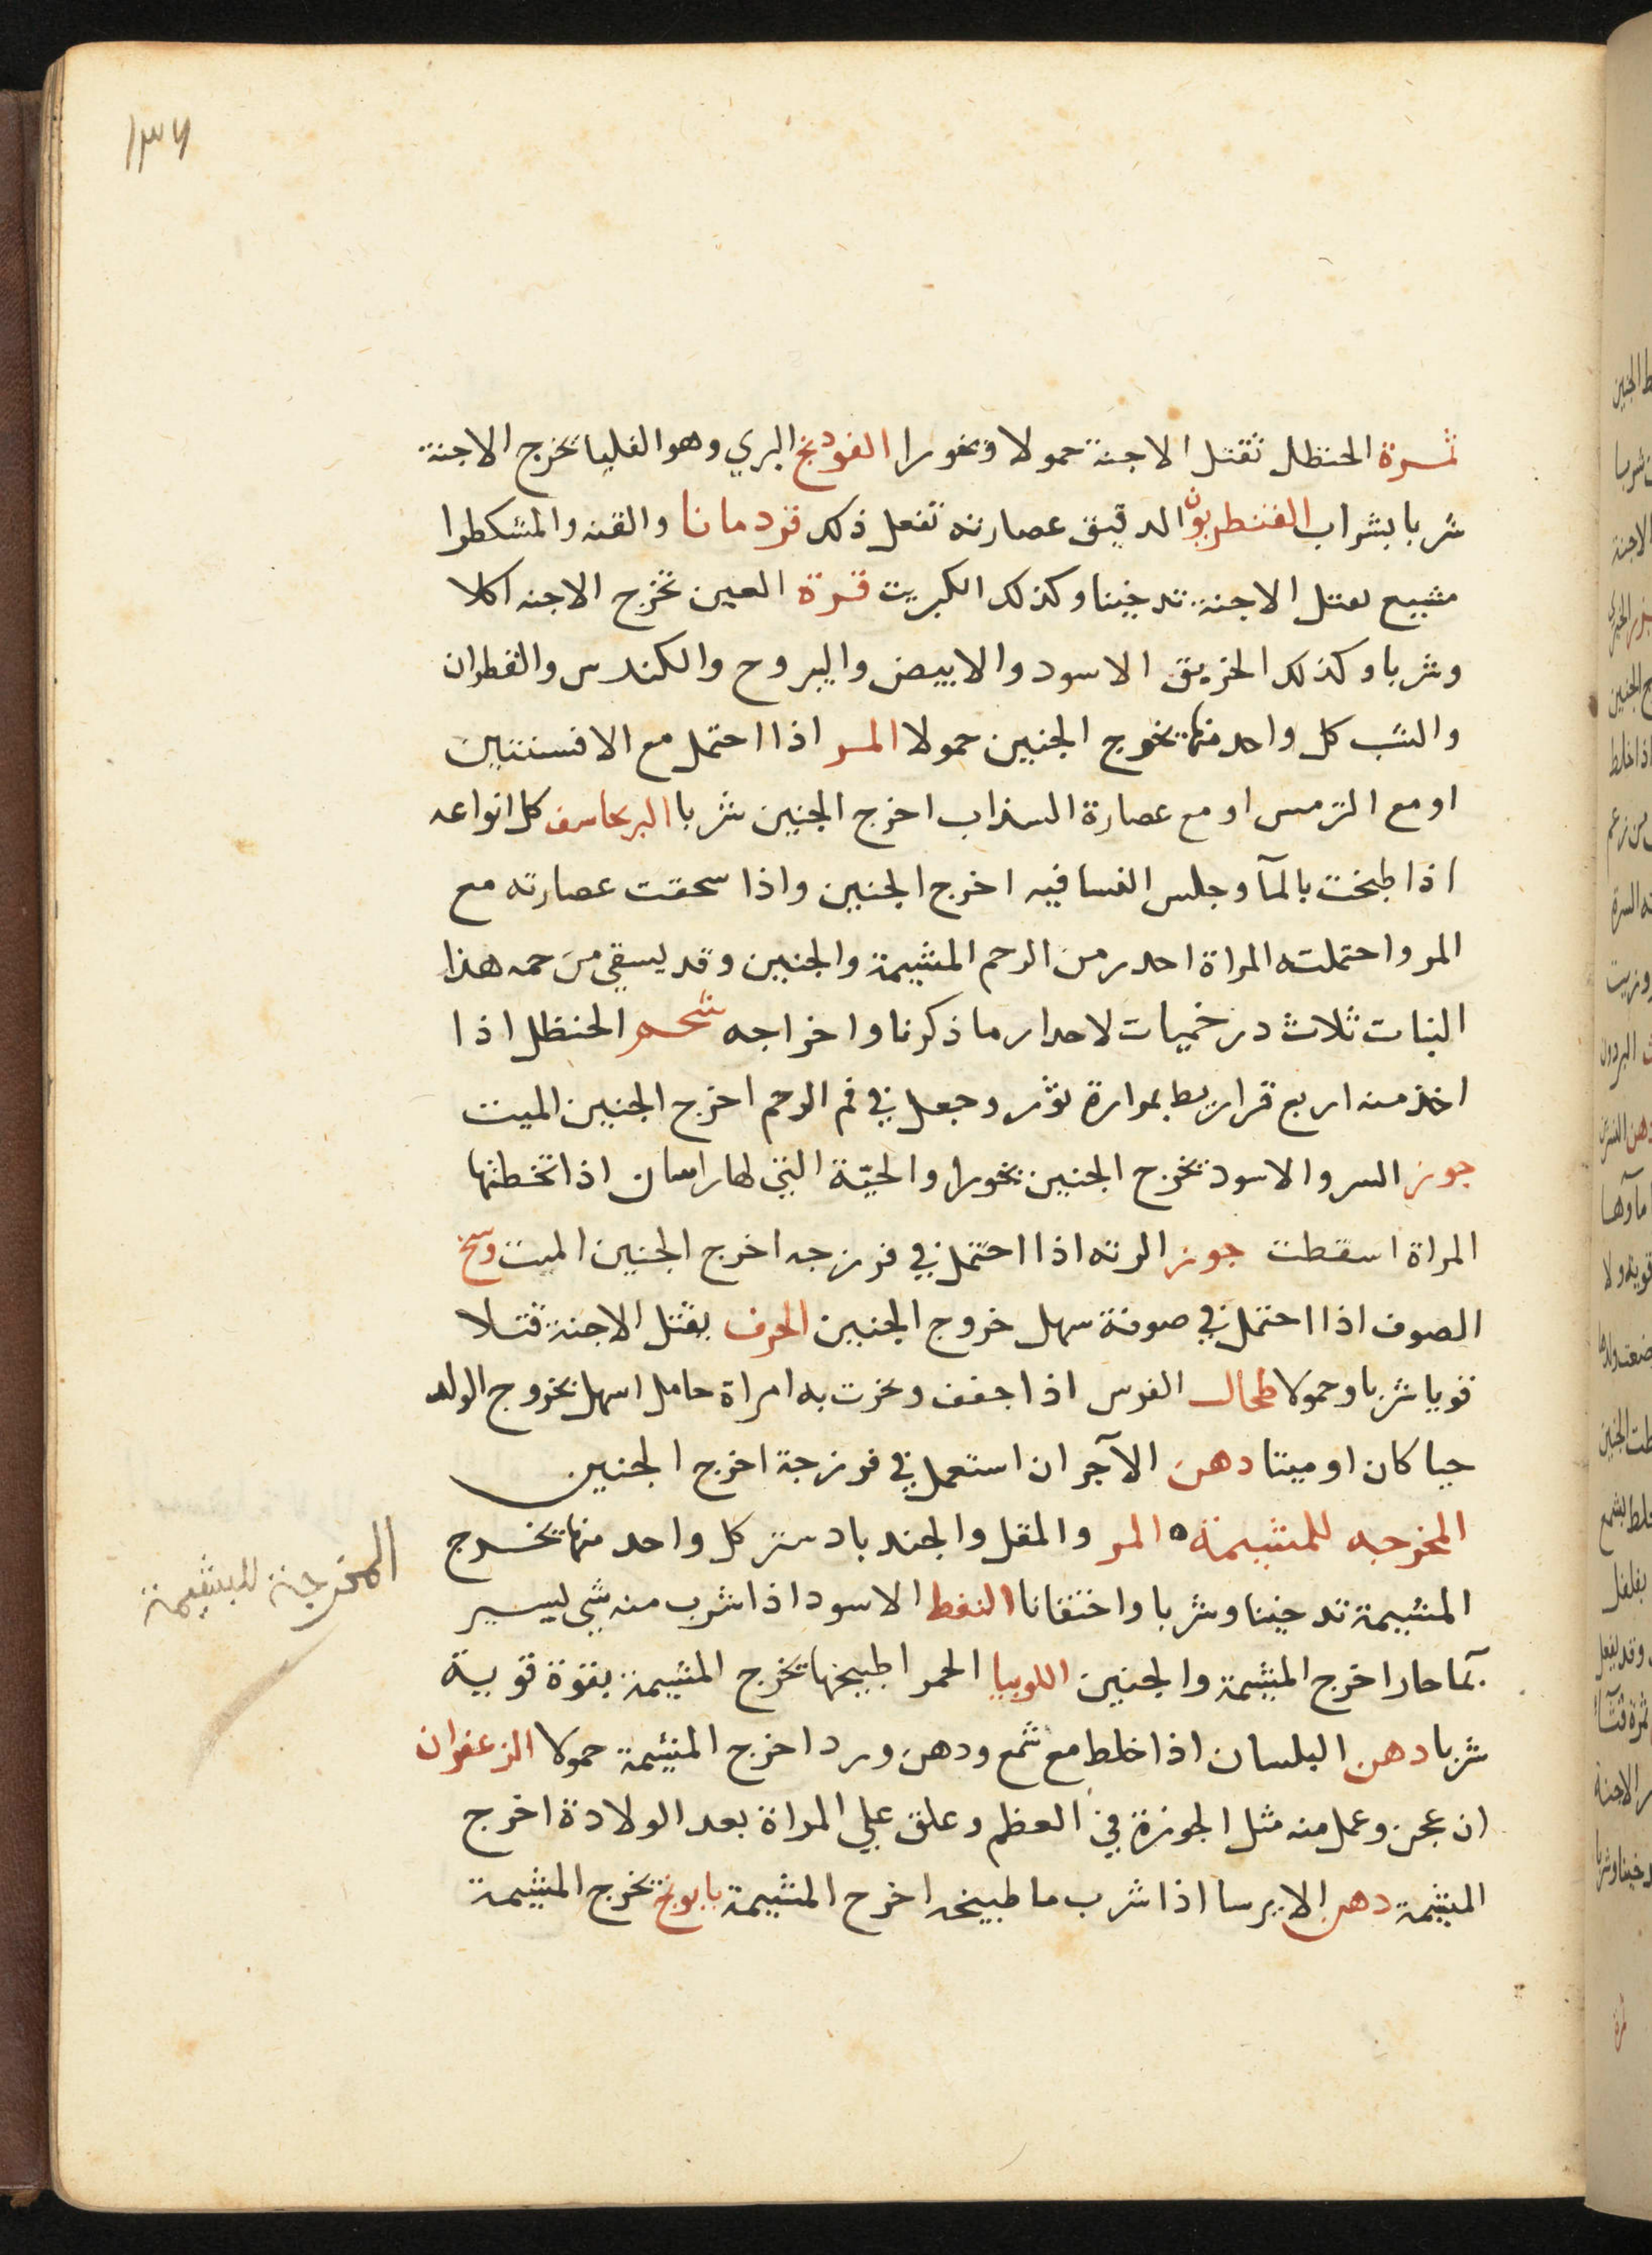 ١٣٦
ثمرة الحنظل تقتل الاجنة حمولا وبخورا الفودنج البري وهو الغليا تخرج الاجنة
شربا بشراب القنطريون الدقيق عصارته تفعل ذلك قردمانا والقنه والمشكطرا
مشيع تقتل الاجنة تدخينا وكذلك الكبريت قرة العين تخرج الاجنه اكلا
وشربا وكذلك الخربق الاسود والابيض واليبروح والكندس والقطران
والشب كل واحد منها تخرج الجنين حمولا المر اذا احتمل مع الافسنتين
او مع الترمس او مع عصارة السذاب اخرج الجنين شربا البرنجاسف كل انواعه
اذا طبخت بالمآ وجلس النسا فيه اخرج الجنين واذا سحقت عصارته مع
المر واحتملته المراة احدر من الرحم المشيمة والجنين وقد يسقى من حمه هذا
النبات ثلاث درخميات لاحدار ما ذكرنا واخراجه شحم الحنظل اذا
اخذ منه اربع قراريط بمرارة ثور وجعل في فم الرحم اخرج الجنين الميت
جوز السرو الاسود تخرج الجنين بخورا والحيّة التي لها راسان اذا تخطتها
المراة اسقطت جوز الرته اذا احتمل في فرزجه اخرج الجنين الميت وسخ
الصوف اذا احتمل في صوفة سهل خروج الجنين الحرف يقتل الاجنة قتلا
قويا شربا وحمولا طحال الفرس اذا جفف وبخرت به امراة حامل اسهل بخروج الولد
حيا كان او ميتا دهن الآجر ان استعمل في فرزجة اخرج الجنين
المخرجه للمشيمة ٥ المر والمقل والجندبادستر كل واحد منها تخرج
المشيمة تدخينا وشربا واختقانا النفط الاسود اذا شرب منه شي يسير
بمآ حار اخرج المشيمة والجنين اللوبيا الحمرا طبيخها تخرج المشيمة بقوة قوية
شربا دهن البلسان اذا خلط مع شمع ودهن ورد اخرج المشيمة حمولا الزعفران
ان عجن وعمل منه مثل الجوزة في العظم وعلق علي المراة بعد الولادة اخرج
المشيمة دهن الايرسا اذا شرب ما طبيخه اخرج المشيمة بابونج تخرج المشيمة
المخرجة للمشيمة